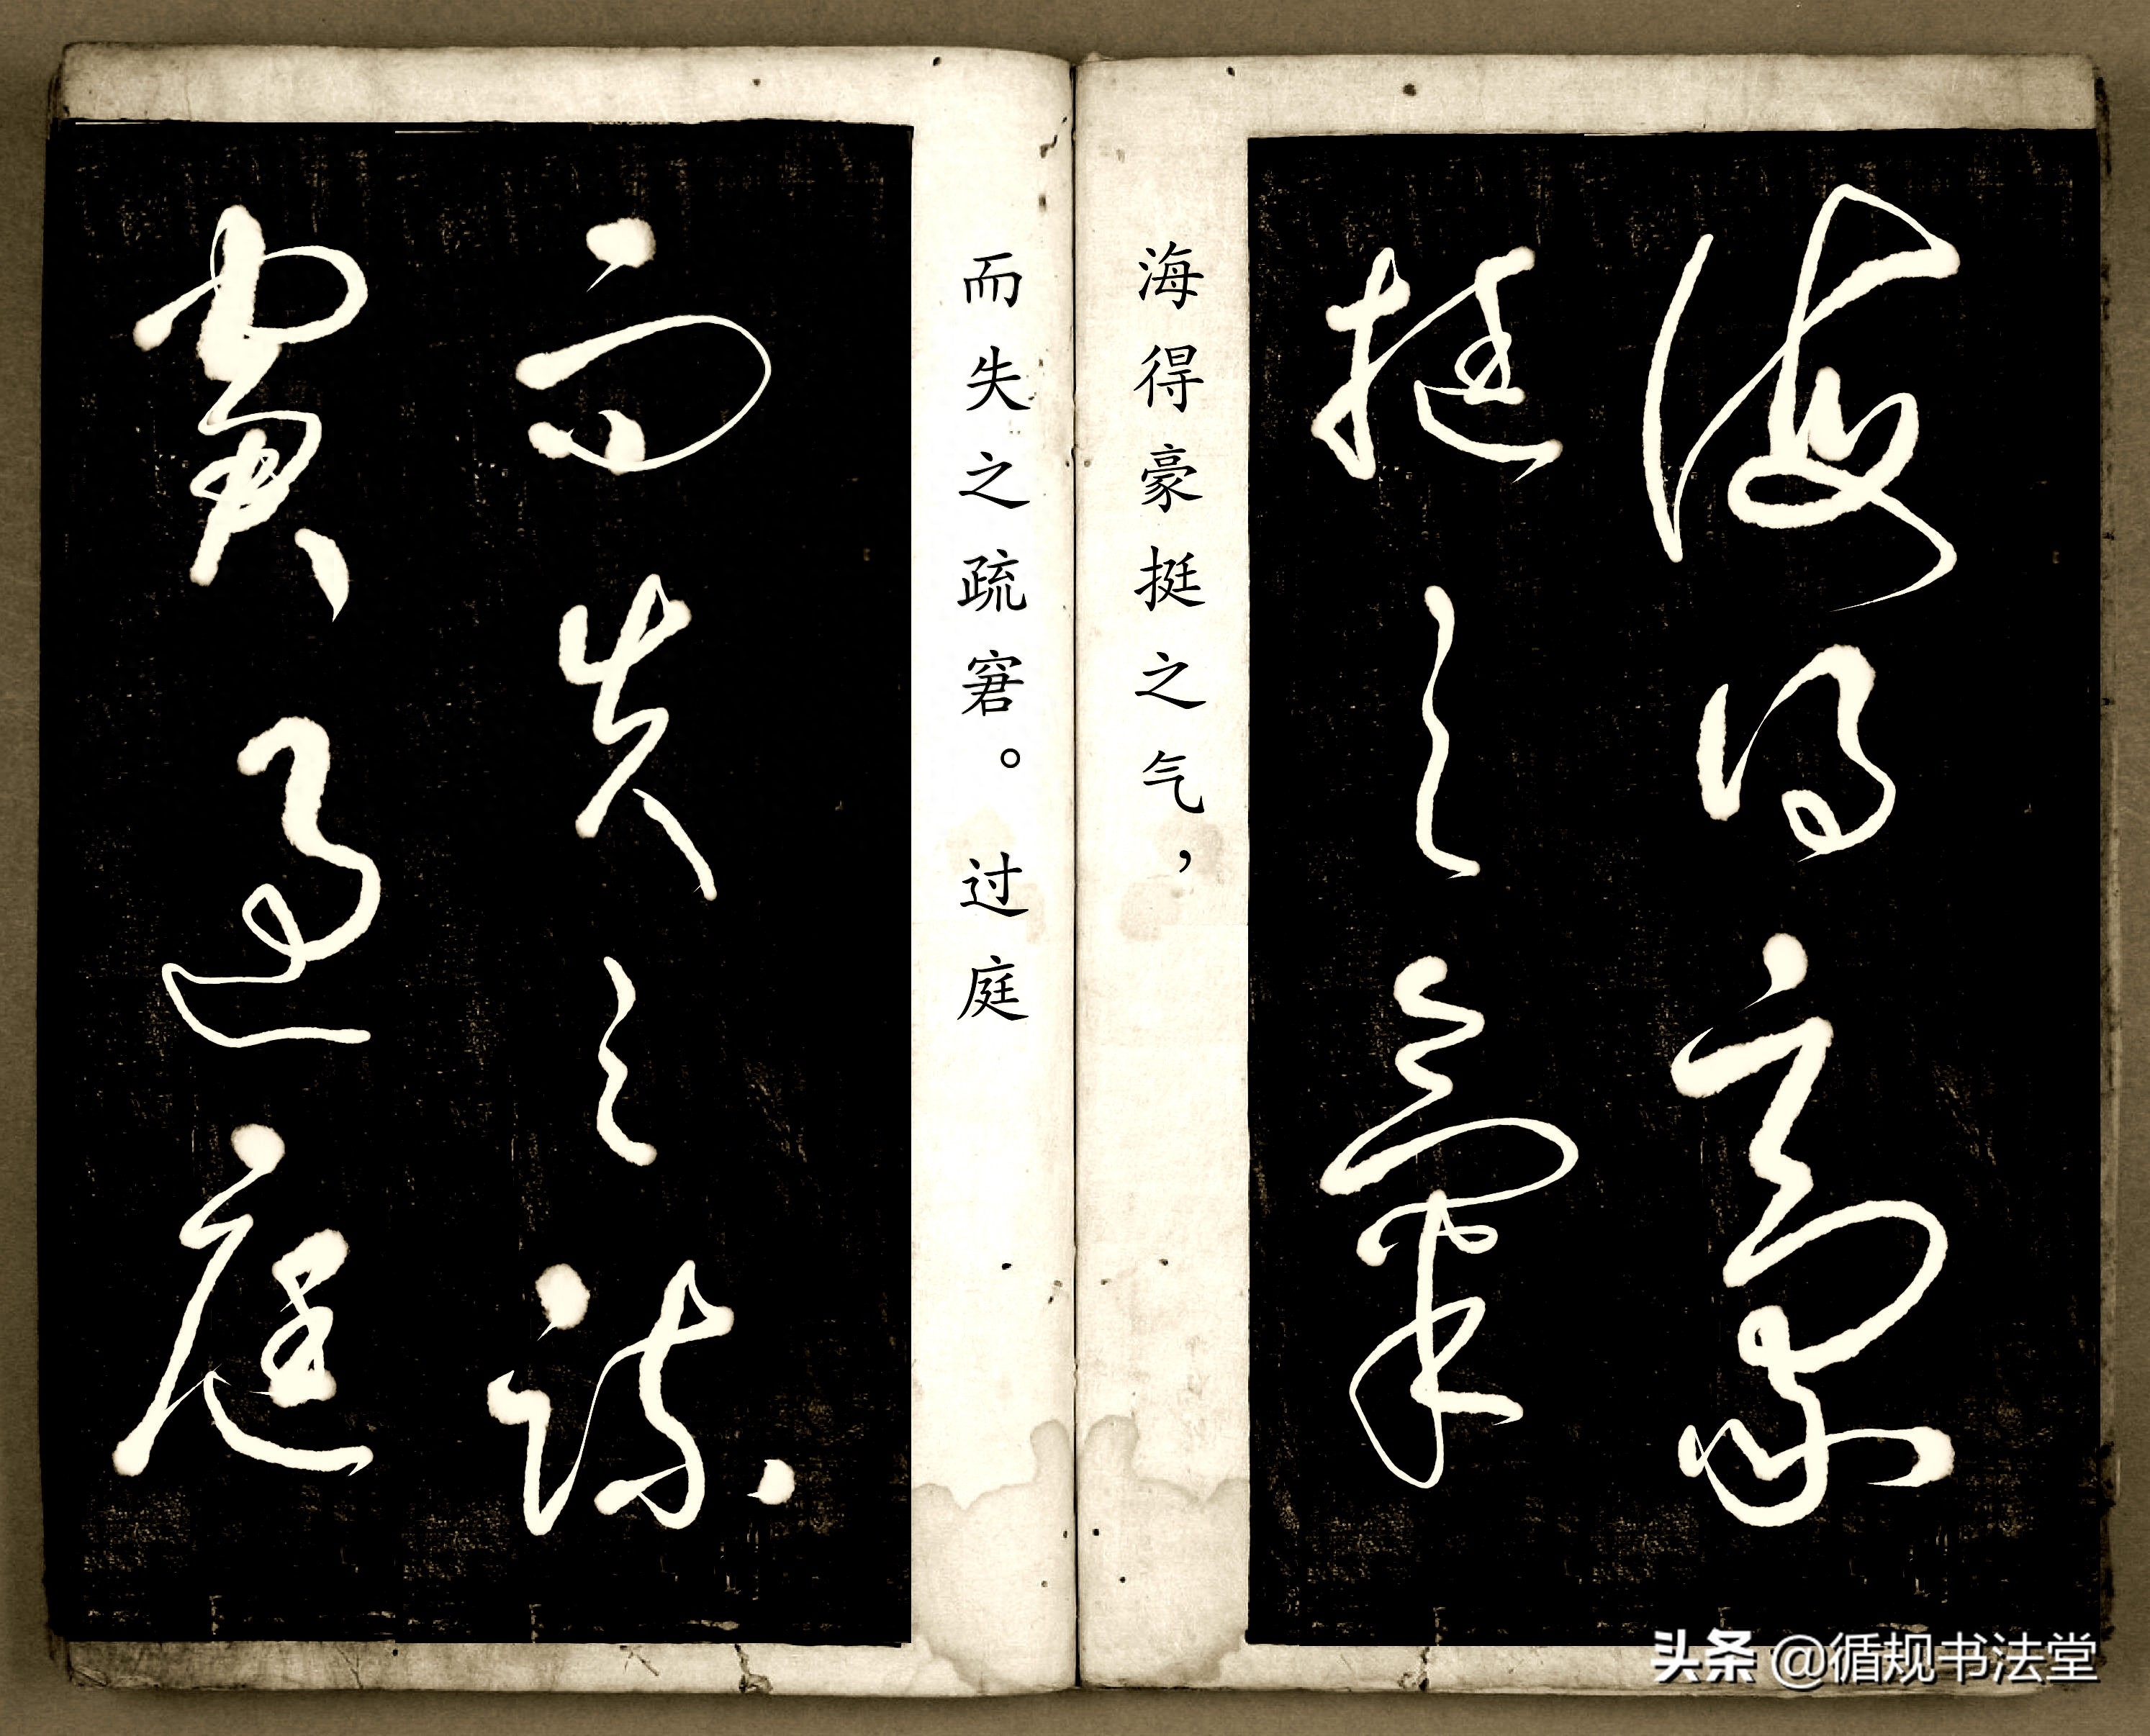 海得豪
挺之氣
海得豪挺之气，
而失之疏窘。过庭
而失之疏
窘過庭
头条 @循规书法堂